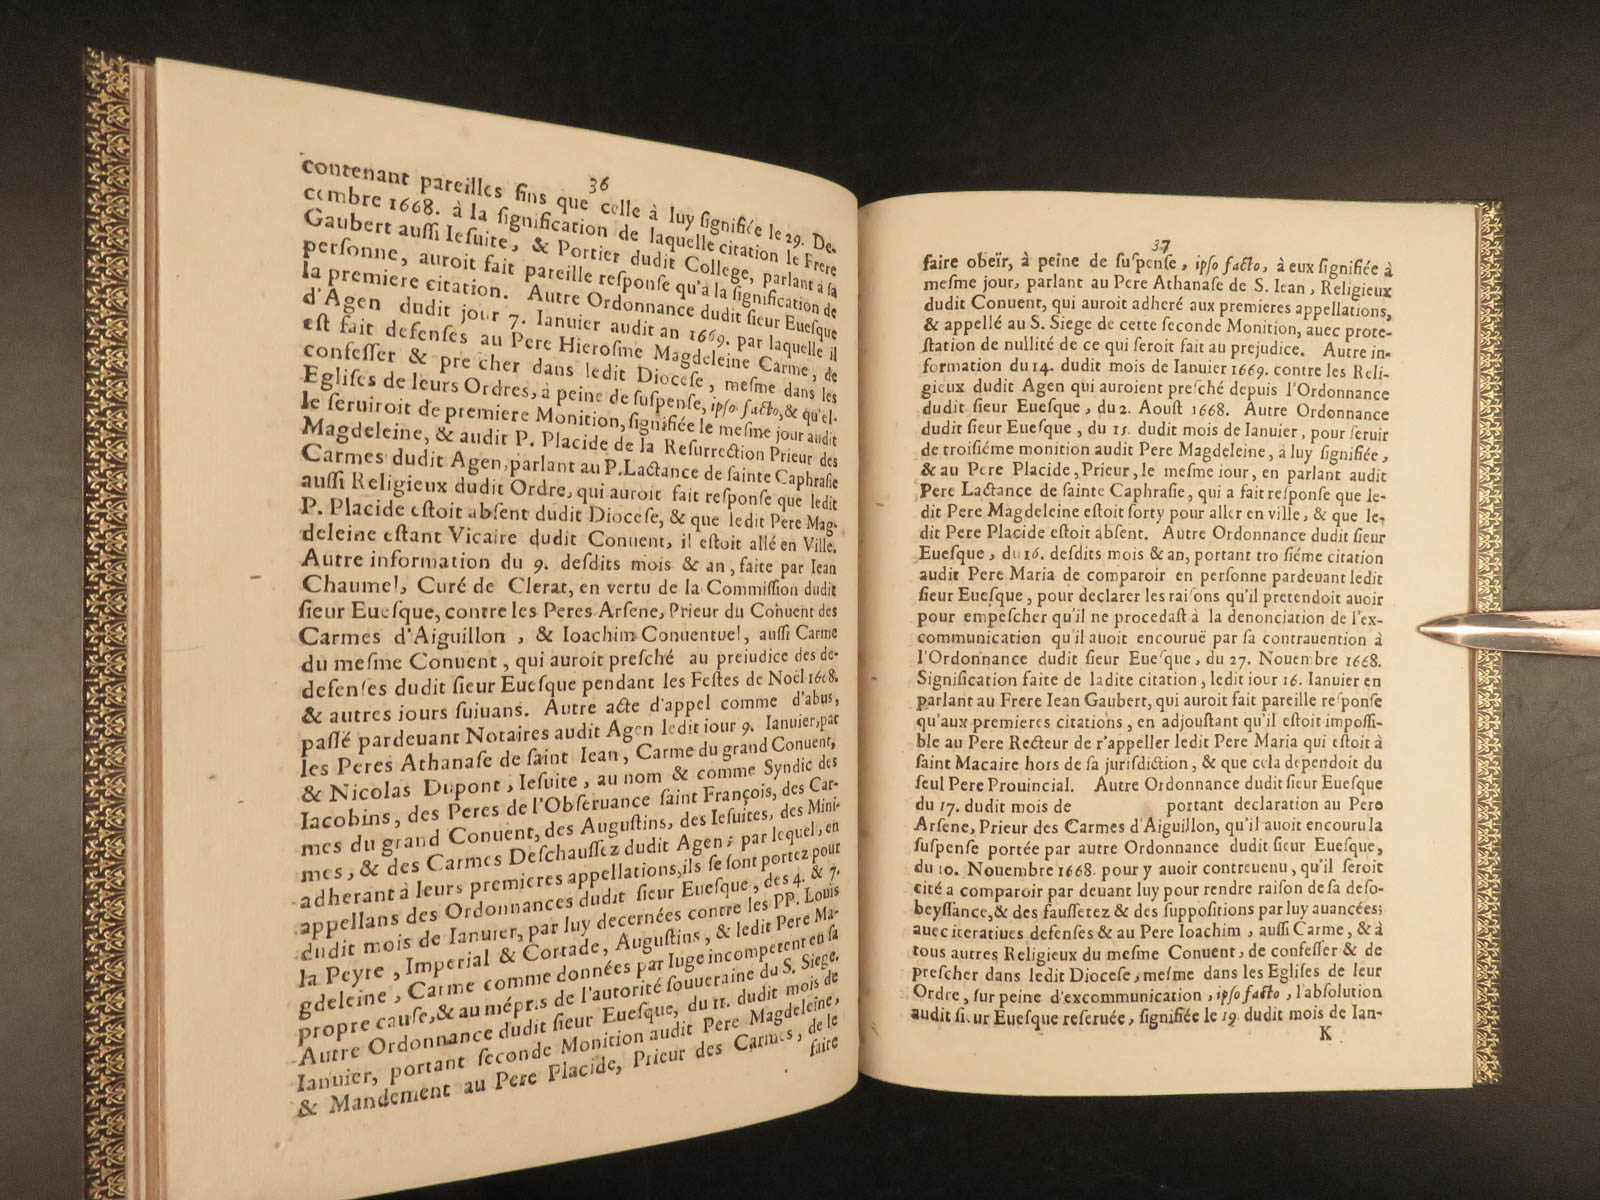 36
contenant pareilles fins que celle à luy ſignifiée le 29. De-
cembre 1668. à la ſignification de laquelle citation le Frere
Gaubert auſſi Ieſuite, & Portier dudit College, parlant à ſa
perſonne, auroit fait pareille reſponſe qu'à la ſignification de
la premiere citation. Autre Ordonnance dudit ſieur Eueſque
d'Agen dudit jour 7. Ianuier audit an 1669. par laquelle il
eſt fait defenſes au Pere Hieroſme Magdeleine Carme, de
confeſſer & preſcher dans ledit Dioceſe, meſme dans les
Egliſes de leurs Ordres, à peine de ſuſpenſe, ipſo facto, & qu'el-
le ſeruiroit de premiere Monition, ſignifiée le meſme jour audit
Magdeleine, & audit P. Placide de la Reſurrection Prieur des
Carmes dudit Agen, parlant au P. Lactance de ſainte Caphraſie
auſſi Religieux dudit Ordre, qui auroit fait reſponſe que ledit
P. Placide eſtoit abſent dudit Dioceſe, & que ledit Pere Mag-
deleine eſtant Vicaire dudit Conuent, il eſtoit allé en Ville.
Autre information du 9. deſdits mois & an, faite par Iean
Chaumel, Curé de Clerat, en vertu de la Commiſſion dudit
ſieur Eueſque, contre les Peres Arſene, Prieur du Conuent des
Carmes d'Aiguillon, & Ioachim Conuentuel, auſſi Carme
du meſme Conuent, qui auroit preſché au prejudice des de-
defenſes dudit ſieur Eueſque pendant les Feſtes de Noël 1668.
& autres iours ſuiuans. Autre acte d'appel comme d'abus,
paſſé pardeuant Notaires audit Agen ledit iour 9. Ianuier, par
les Peres Athanaſe de ſaint Iean, Carme du grand Conuent,
& Nicolas Dupont, Ieſuite, au nom & comme Syndic des
Iacobins, des Peres de l'Obſeruance ſaint François, des Car-
mes du grand Conuent, des Auguſtins, des Ieſuites, des Mini-
mes, & des Carmes Deſchauſſez dudit Agen; par lequel, en
adherant à leurs premieres appellations, ils ſe ſont portez pour
appellans des Ordonnances dudit ſieur Eueſque, des 4. & 7.
dudit mois de Ianuier, par luy decernées contre les PP. Louis
la Peyre, Imperial & Cortade, Auguſtins, & ledit Pere Ma-
gdeleine, Carme comme données par Iuge incompetent en ſa
propre cauſe, & au mépris de l'autorité ſouueraine du S. Siege.
Autre Ordonnance dudit ſieur Eueſque, du 11. dudit mois de
Ianuier, portant ſeconde Monition audit Pere Magdeleine,
& Mandement au Pere Placide, Prieur des Carmes, de le
faire
37
faire obeïr, à peine de ſuſpenſe, ipſo facto, à eux ſignifiée à
meſme jour, parlant au Pere Athanaſe de S. Iean, Religieux
dudit Conuent, qui auroit adheré aux premieres appellations,
& appellé au S. Siege de cette ſeconde Monition, auec prote-
ſtation de nullité de ce qui ſeroit fait au prejudice. Autre in-
formation du 14. dudit mois de Ianuier 1669. contre les Reli-
gieux dudit Agen qui auroient preſché depuis l'Ordonnance
dudit ſieur Eueſque, du 2. Aouſt 1668. Autre Ordonnance
dudit ſieur Eueſque, du 15. dudit mois de Ianuier, pour ſeruir
de troiſiéme monition audit Pere Magdeleine, à luy ſignifiée,
& au Pere Placide, Prieur, le meſme iour, en parlant audit
Pere Lactance de ſainte Caphraſie, qui a fait reſponſe que le-
dit Pere Magdeleine eſtoit ſorty pour aller en ville, & que le-
dit Pere Placide eſtoit abſent. Autre Ordonnance dudit ſieur
Eueſque, du 16. deſdits mois & an, portant troiſiéme citation
audit Pere Maria de comparoir en perſonne pardeuant ledit
ſieur Eueſque, pour declarer les raiſons qu'il pretendoit auoir
pour empeſcher qu'il ne procedaſt à la denonciation de l'ex-
communication qu'il auoit encouruë par ſa contrauention à
l'Ordonnance dudit ſieur Eueſque, du 27. Nouembre 1668.
Signification faite de ladite citation, ledit iour 16. Ianuier en
parlant au Frere Iean Gaubert, qui auroit fait pareille reſponſe
qu'aux premieres citations, en adjouſtant qu'il eſtoit impoſſi-
ble au Pere Recteur de r'appeller ledit Pere Maria qui eſtoit à
ſaint Macaire hors de ſa juriſdiction, & que cela dependoit du
ſeul Pere Prouincial. Autre Ordonnance dudit ſieur Eueſque
du 17. dudit mois de portant declaration au Pere
Arſene, Prieur des Carmes d'Aiguillon, qu'il auoit encouru la
ſuſpenſe portée par autre Ordonnance dudit ſieur Eueſque,
du 10. Nouembre 1668. pour y auoir contreuenu, qu'il ſeroit
cité a comparoir par deuant luy pour rendre raiſon de ſa deſo-
beyſſance, & des fauſſetez & des ſuppoſitions par luy auancées;
auec iteratiues defenſes & au Pere Ioachim, auſſi Carme, & à
tous autres Religieux du meſme Conuent, de confeſſer & de
preſcher dans ledit Dioceſe, meſme dans les Egliſes de leur
Ordre, ſur peine d'excommunication, ipſo facto, l'abſolution
audit ſieur Eueſque reſeruée, ſignifiée le 19. dudit mois de Ian-
K